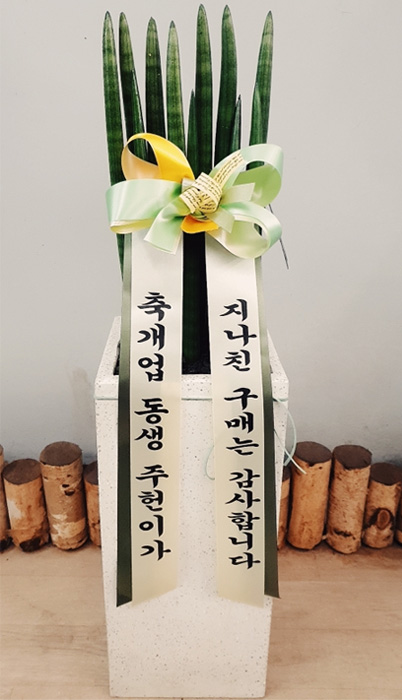 축개업 동생 주헌이가
지나친 구매는 감사합니다